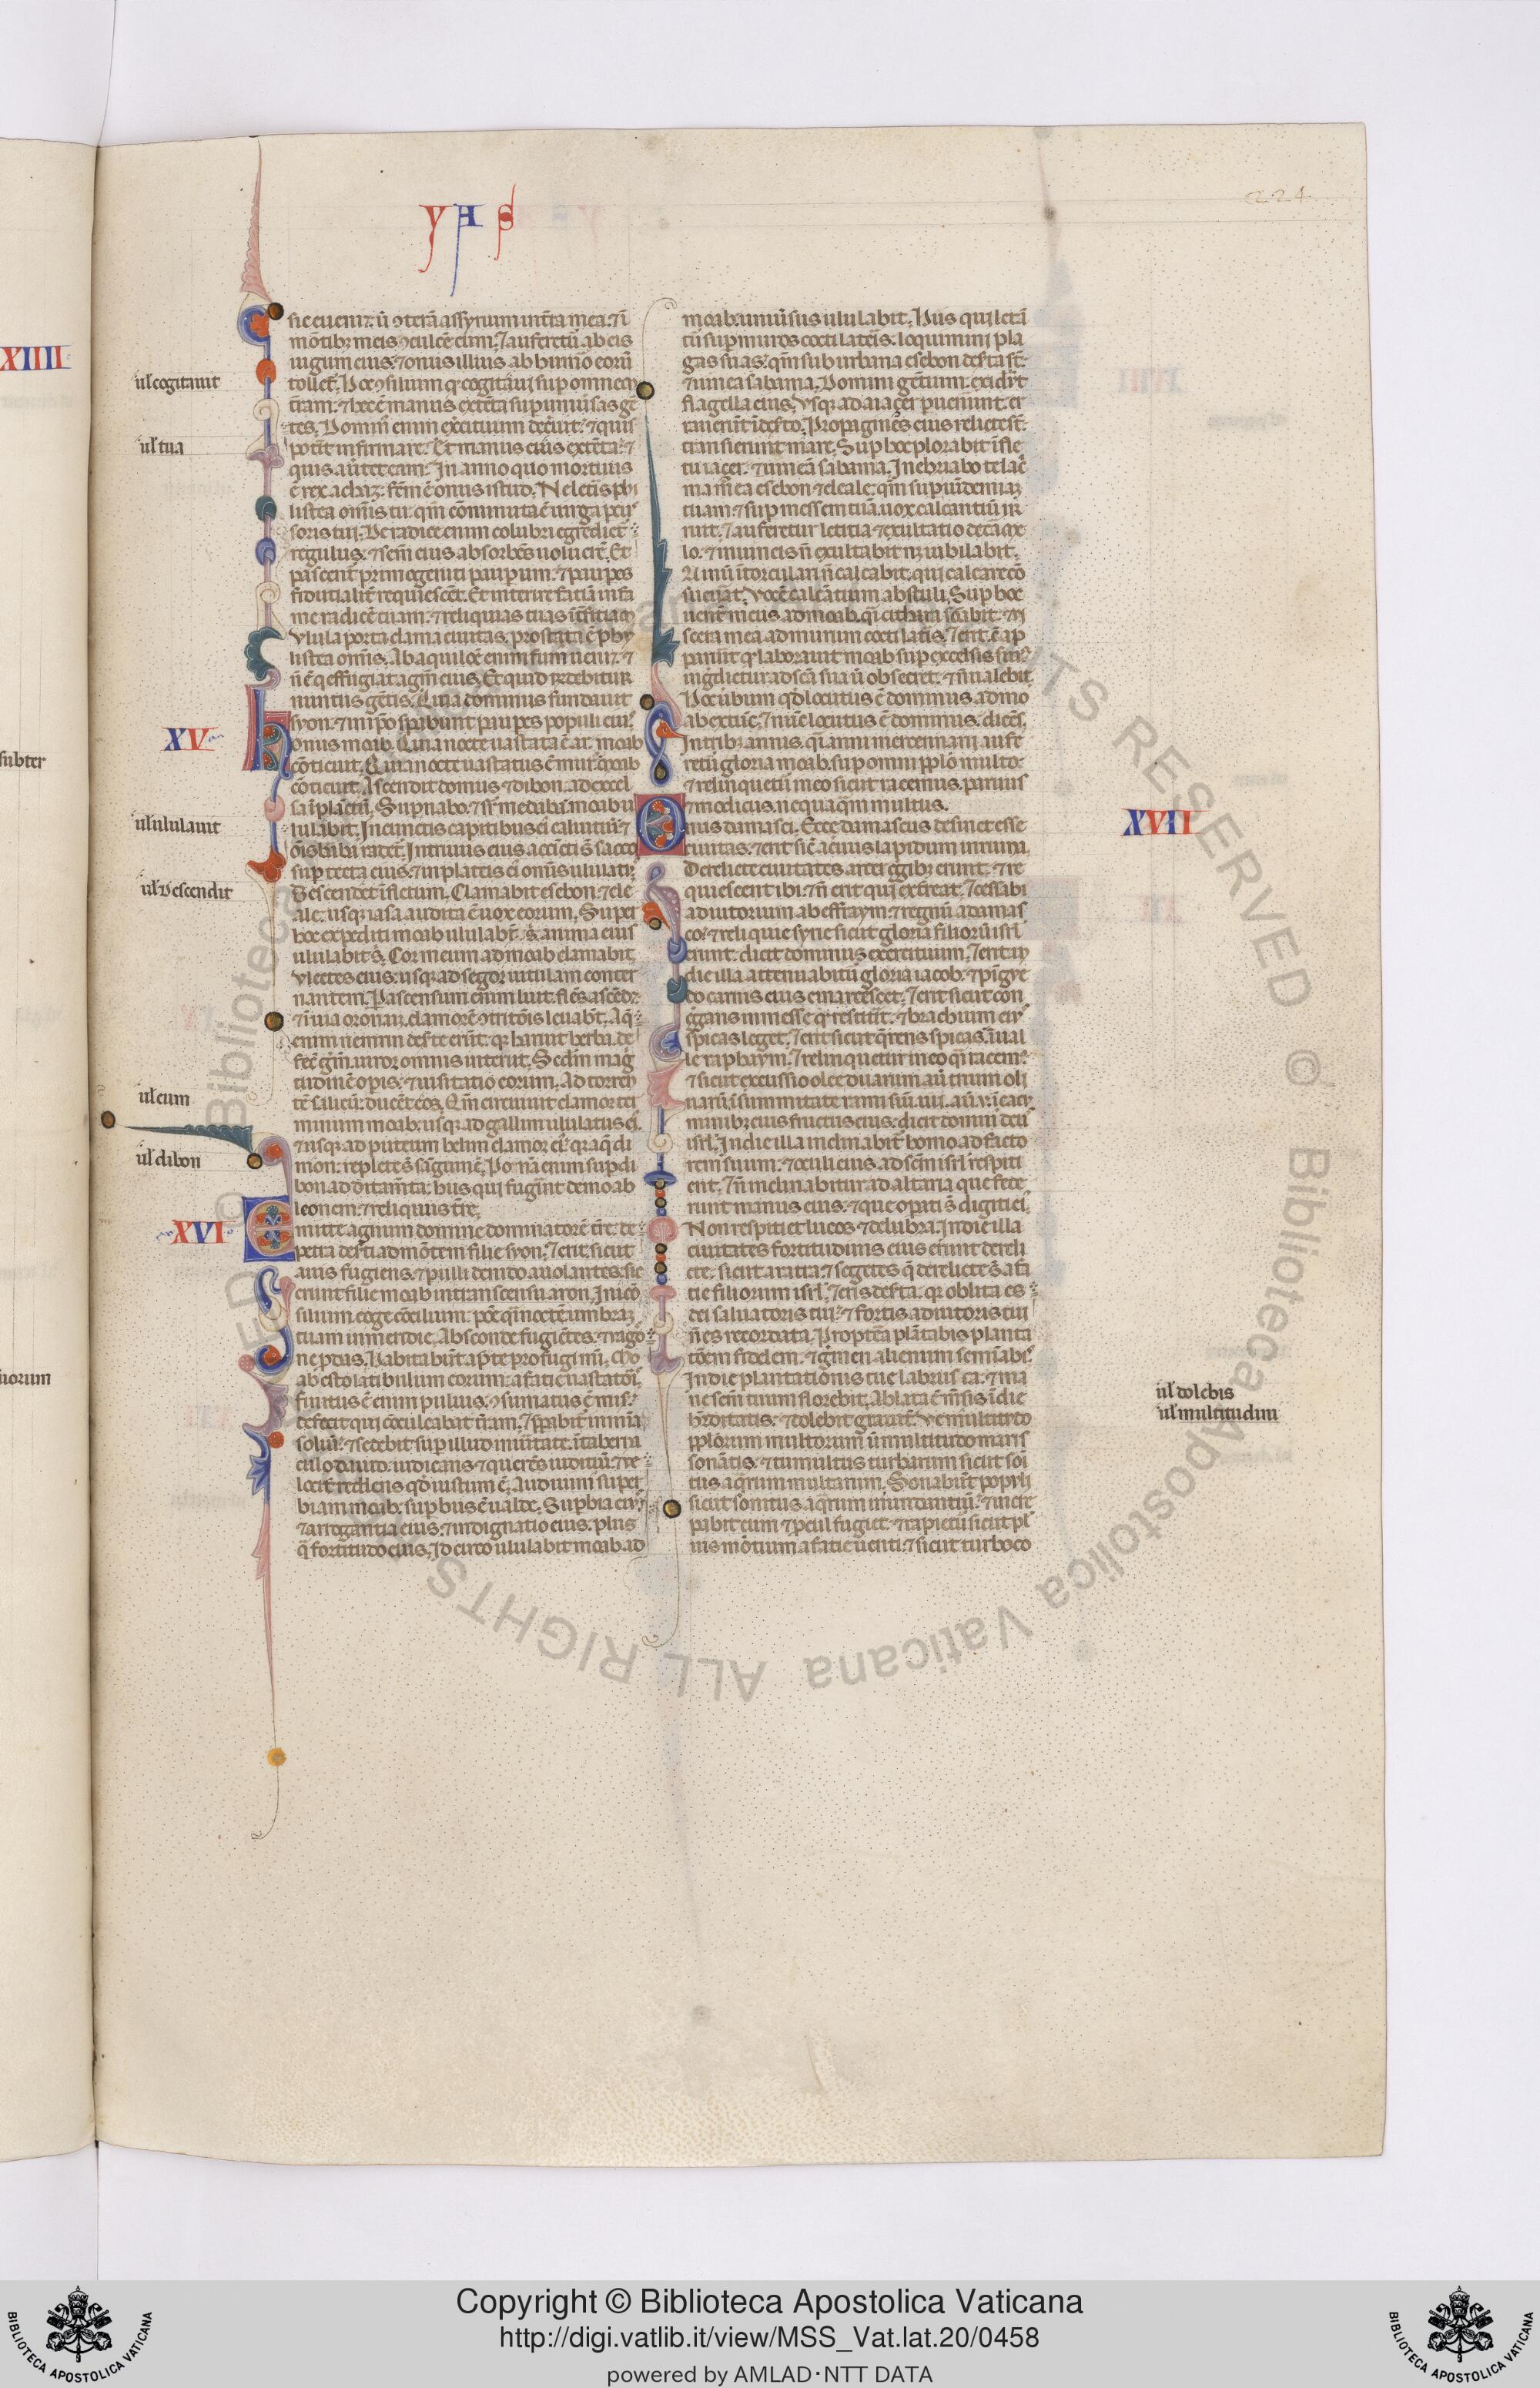 YSA
224
XIIII
subter
uorum
ul cogitauit
ul tua
XV
ul ululauit
ul descendit
ul eum
ul dibon
XVI
sic eueniꝫ. ut ꝯterã assyrium in tr̃a mea. ⁊ ĩ
mõtibꝫ meis ꝯculcẽ eum. ⁊ auferetur̃ ab eis
iugum eius. ⁊ onus illius ab humo eorũ
tolleꝉ. Hoc ꝯsilium qd̃ cogitaui sup omnem
tr̃am. ⁊ hec ẽ manus extẽta sup uniũsas gẽ
tes. Domin̾ enim exercituum decreuit. ⁊ quis
poterit infirmare. Et manus eius extẽta. ⁊
quis auertet eam. In anno quo mortuus
ẽ rex achaz. fc̃m ẽ onus istud. Ne leteris phi
listea omnis tu. qm̃ cõminuta ẽ uirga pcus
soris tui. De radice enim colubri egredieꝉ
regulus. ⁊ sem̃ eius absorbẽs uolucrẽ. Et
pascent̾ primogeniti pauperum. ⁊ pauperes
fiducialiꝉ requiescẽt. Et interire faciã in fa
me radicẽ tuam. ⁊ reliquias tuas ĩterficiam
Vlula porta clama ciuitas. prostrata ẽ phy
listea omnis. Ab aquilõe enim fum̾ ueniꝫ. ⁊
nõ ẽ q̃ effugiat agm̃ eius. Et quid respõdebitur
nuntiis gẽtis. Quia dominus fundauit
syon. ⁊ in ipõ sperabunt pauperes populi eius.
Onus moab. Quia nocte uastata ẽ ar. moab
cõticuit. Quia nocte uastatus ẽ mur̾. moab
cõticuit. Ascendit domus ⁊ dibon. ad excel
sa in plãctũ. Sup nabo. ⁊ sup medaba moab u
lulabit. In cunctis capitibus ei caluitiũ. ⁊
õis barba radeꝉ. In triuiis eius accicti sũt sacco
sup tecta eius. ⁊ in plateis ei omĩs ululatus
descendet ĩ fletum. Clamabit esebon. ⁊ ele
ale. usqꝫ iasa audita ẽ uox eorum. Super
hoc expediti moab ululabũt. aĩma eius
ululabit s̃. Cor meum ad moab clamabit.
Vectes eius. usqꝫ ad segor uitulam conter
nantem. Per ascensum enim luit. flẽs ascẽdꝫ
⁊ ĩ uia oronaim. clamorẽ ꝯtritiõis leuabũt. Aq̃
enim nemrin deserte erũt. qꝫ haruit herba. de
fecit germẽ. uiror omnis interiit. Scd̃m mag
tudinẽ opis. ⁊ uisitatio eorum. Ad torren
tẽ salicũ. ducẽt eos. Qm̃ circuiuit clamor ter
minum moab. usqꝫ ad gallim ululatus ei.
⁊ usqꝫ ad puteum helim clamor ei. qꝫ aq̃ di
mon. replete sũt sãguine. Ponã enim sup di
bon additam̃ta. hiis qui fugerint de moab
leonem. ⁊ reliquiis tr̃e.
Emitte agnum domine dominatorẽ tr̃e. de
petra deserti ad mõtem filie syon. ⁊ erit. sicut
auis fugiens. ⁊ pulli de nido auolantes. sic
erunt filie moab in transcensu arnon. Ini cõ
silium. coge cõcilium. põe q̃si noctẽ umbram
tuam in meridie. Absconde fugiẽtes. ⁊ uagos
ne prodas. Habitabũt apud te profugi mei. Mo
ab esto latibulum eorum. a facie uastatoris.
finitus ẽ enim puluis. ꝯsumatus ẽ miser.
defecit qui cõculcabat tr̃am. ⁊ pparabit̾ in mĩa
soliũ. ⁊ sedebit sup illud in ueritate. ĩ taberna
culo dauid. iudicans ⁊ querẽs iudiciũ. ⁊ ue
lociter reddens qd̾ iustum ẽ. Audiuim̾ super
biam moab. superbus ẽ ualde. Superbia eius
⁊ arrogantia eius. ⁊ indignatio eius. plus
q̃ fortitudo eius. Idcirco ululabit moab ad
moab. uniũsus ululabit. Hiis qui letant̾
sup muros cocti lateris. loquimini pla
gas suas. qm̃ suburbana esebon deserta sũt.
⁊ uinea sabama. Domini gẽtium. exciderũt
flagella eius. Vsqꝫ ad iazer peruenerunt. er
rauerũt ĩ deserto. Propagines eius relicte sũt.
transierunt mare. Sup hoc plorabit ĩ fle
tu iazer. ⁊ uineã sabama. Inebriabo te lac̾
ma mea esebon ⁊ eleale. qm̃ sup uĩdemiam
tuam. ⁊ sup messem tuã. uox calcantiũ ir
ruit. ⁊ auferetur letitia ⁊ exultatio de carme
lo. ⁊ in uineis nõ exultabit neqꝫ iubilabit.
Vinũ ĩ torculari nõ calcabit. qui calcare cõ
sueuerat. Vocẽ calcãtium abstuli. Sup hoc
uenter meus ad moab. q̃si cithara sonabit. ⁊ ui
scera mea ad murum cocti lateris. ⁊ erit. cũ ap
paruerit qd̾ laborauit moab sup excelsis suis.
ingredietur ad sc̃a sua ut obsecret. ⁊ nõ ualebit.
Hoc uerbum qd̾ locutus ẽ dominus ad mo
ab ex tũc. ⁊ nũc locutus ẽ dominus. dicẽs.
In tribꝫ annis. q̃si anni mercennarii aufe
retur̃ gloria moab. sup omni pplo multo.
⁊ relinquetur̃ in eo sicut racemus. paruus
⁊ modicus. nequaq̃m multus.
Onus damasci. Ecce damascus desinet esse
ciuitas. ⁊ erit sicut aceruus lapidum in ruina.
Derelicte ciuitates aroer gregibꝫ erunt. ⁊ re
quiescent ibi. ⁊ nõ erit qui exterreat. ⁊ cessabit
adiutorium ab effraym. ⁊ regnũ a damas
co. ⁊ reliquie syrie sicut gloria filiorũ isrl̾
erunt. dicit dominus exercituum. ⁊ erit in
die illa attenuabitur̃ gloria iacob. ⁊ pĩgue
do carnis eius emarcescet. ⁊ erit sicut con
gregans in messe qd̾ restiterit. ⁊ brachium eius
spicas leget. ⁊ erit sicut q̃rens spicas. ĩ ual
le raphaym. ⁊ relinquetur in eo q̃si racem̾.
⁊ sicut excussio olee duarum aut trium oli
uarũ. ĩ summitate rami siue. iiii. aut. v. ĩ cacu
minibꝫ eius fructus eius. dicit domin̾ deus
isrl̾. In die illa inclinabit̾ homo ad facto
rem suum. ⁊ oculi eius. ad sc̃m isrl̾ respici
ent. ⁊ nõ inclinabitur ad altaria que fece
runt manus eius. ⁊ que opati sũt digiti ei.
Non respiciet lucos ⁊ delubra. In die illa
ciuitates fortitudinis eius erunt dereli
cte. sicut aratra. ⁊ segetes q̃ derelicte sũt a fa
cie filiorum isrl̾. ⁊ eris deserta. qꝫ oblita es
dei saluatoris tui. ⁊ fortis adiutoris tui
nõ es recordata. Propterea plãtabis planta
tiõem fidelem. ⁊ germen alienum semĩabis.
In die plantationis tue labrusca. ⁊ ma
ne semen tuum florebit. Ablata ẽ messis ĩ die
hereditatis. ⁊ dolebit grauiter. Ve multitudo
pplorum multorum. ut multitudo maris
sonãtis. ⁊ tumultus turbarum sicut soni
tus aq̃rum multarum. Sonabũt populi
sicut sonitus aq̃rum inundantiũ. ⁊ incre
pabit eum ⁊ procul fugiet. ⁊ rapietur̃ sicut pul
uis mõtium a facie uenti. ⁊ sicut turbo co
XVII
ul dolebis
ul multitudini
Copyright © Biblioteca Apostolica Vaticana
http://digi.vatlib.it/view/MSS_Vat.lat.20/0458
powered by AMLAD·NTT DATA
BIBLIOTECA APOSTOLICA VATICANA
BIBLIOTECA APOSTOLICA VATICANA